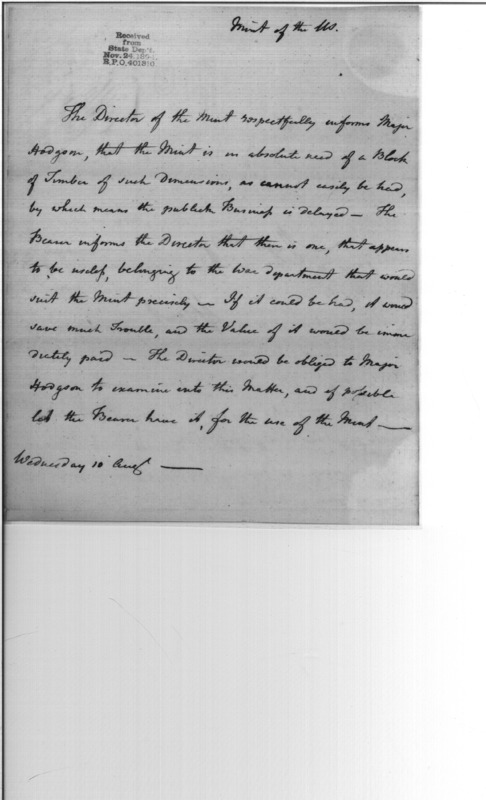 Mint of the US.
Received
from
State Dep't.
Nov. 24, 185
R.P.O. 401810
The Director of the Mint respectfully informs Major
Hodgson, that the Mint is in absolute need of a Block
of Timber of such Dimensions, as cannot easily be had,
by which means the publick Business is delayed — The
Bearer informs the Director that there is one, that appears
to be useless, belonging to the War department that would
suit the Mint precisely — If it could be had, it would
save much Trouble, and the Value of it would be imme
diately paid — The Director would be obliged to Major
Hodgson to examine into this Matter, and if possible
let the Bearer have it, for the use of the Mint —
Wednesday 10 Augt —